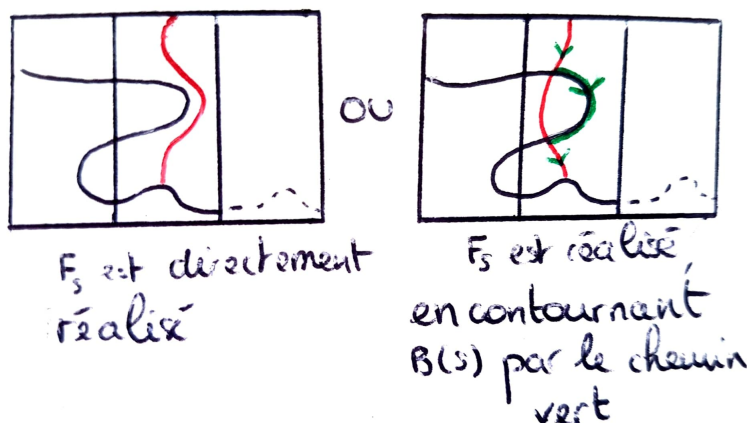 OU
F_s est directement
réalisé
F_s est réalisé,
en contournant
B(s) par le chemin
vert